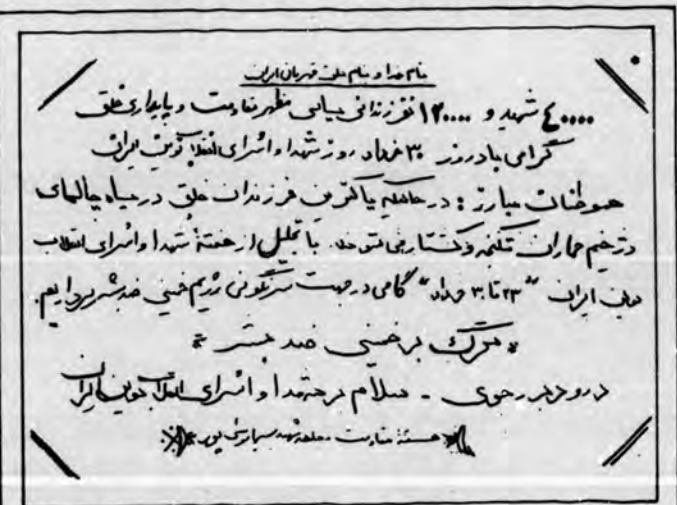 بنام خدا و بنام خلق قهرمان ایران
۴۰۰۰۰ شهید و ۱۲۰۰۰۰ نفر زندانی سیاسی مظهر مقاومت و پایداری خلق
گرامی باد روز ۳۰ خرداد روز شهدا و اسرای انقلاب نوین ایران
هموطنان مبارز : در حالیکه پاکترین فرزندان خلق در سیاه چالهای
دژخیم جماران شکنجه و کشتار می‌شوند. با تجلیل از هفتهٔ شهدا و اسرای انقلاب
نوین ایران "۲۳ تا ۳۰ خرداد" گامی در جهت سرنگونی رژیم خمینی ضد بشر برداریم.
* مرگ بر خمینی ضد بشر *
درود بر رجوی - سلام بر شهدا و اسرای انقلاب نوین ایران
هستهٔ مقاومت محله شهید